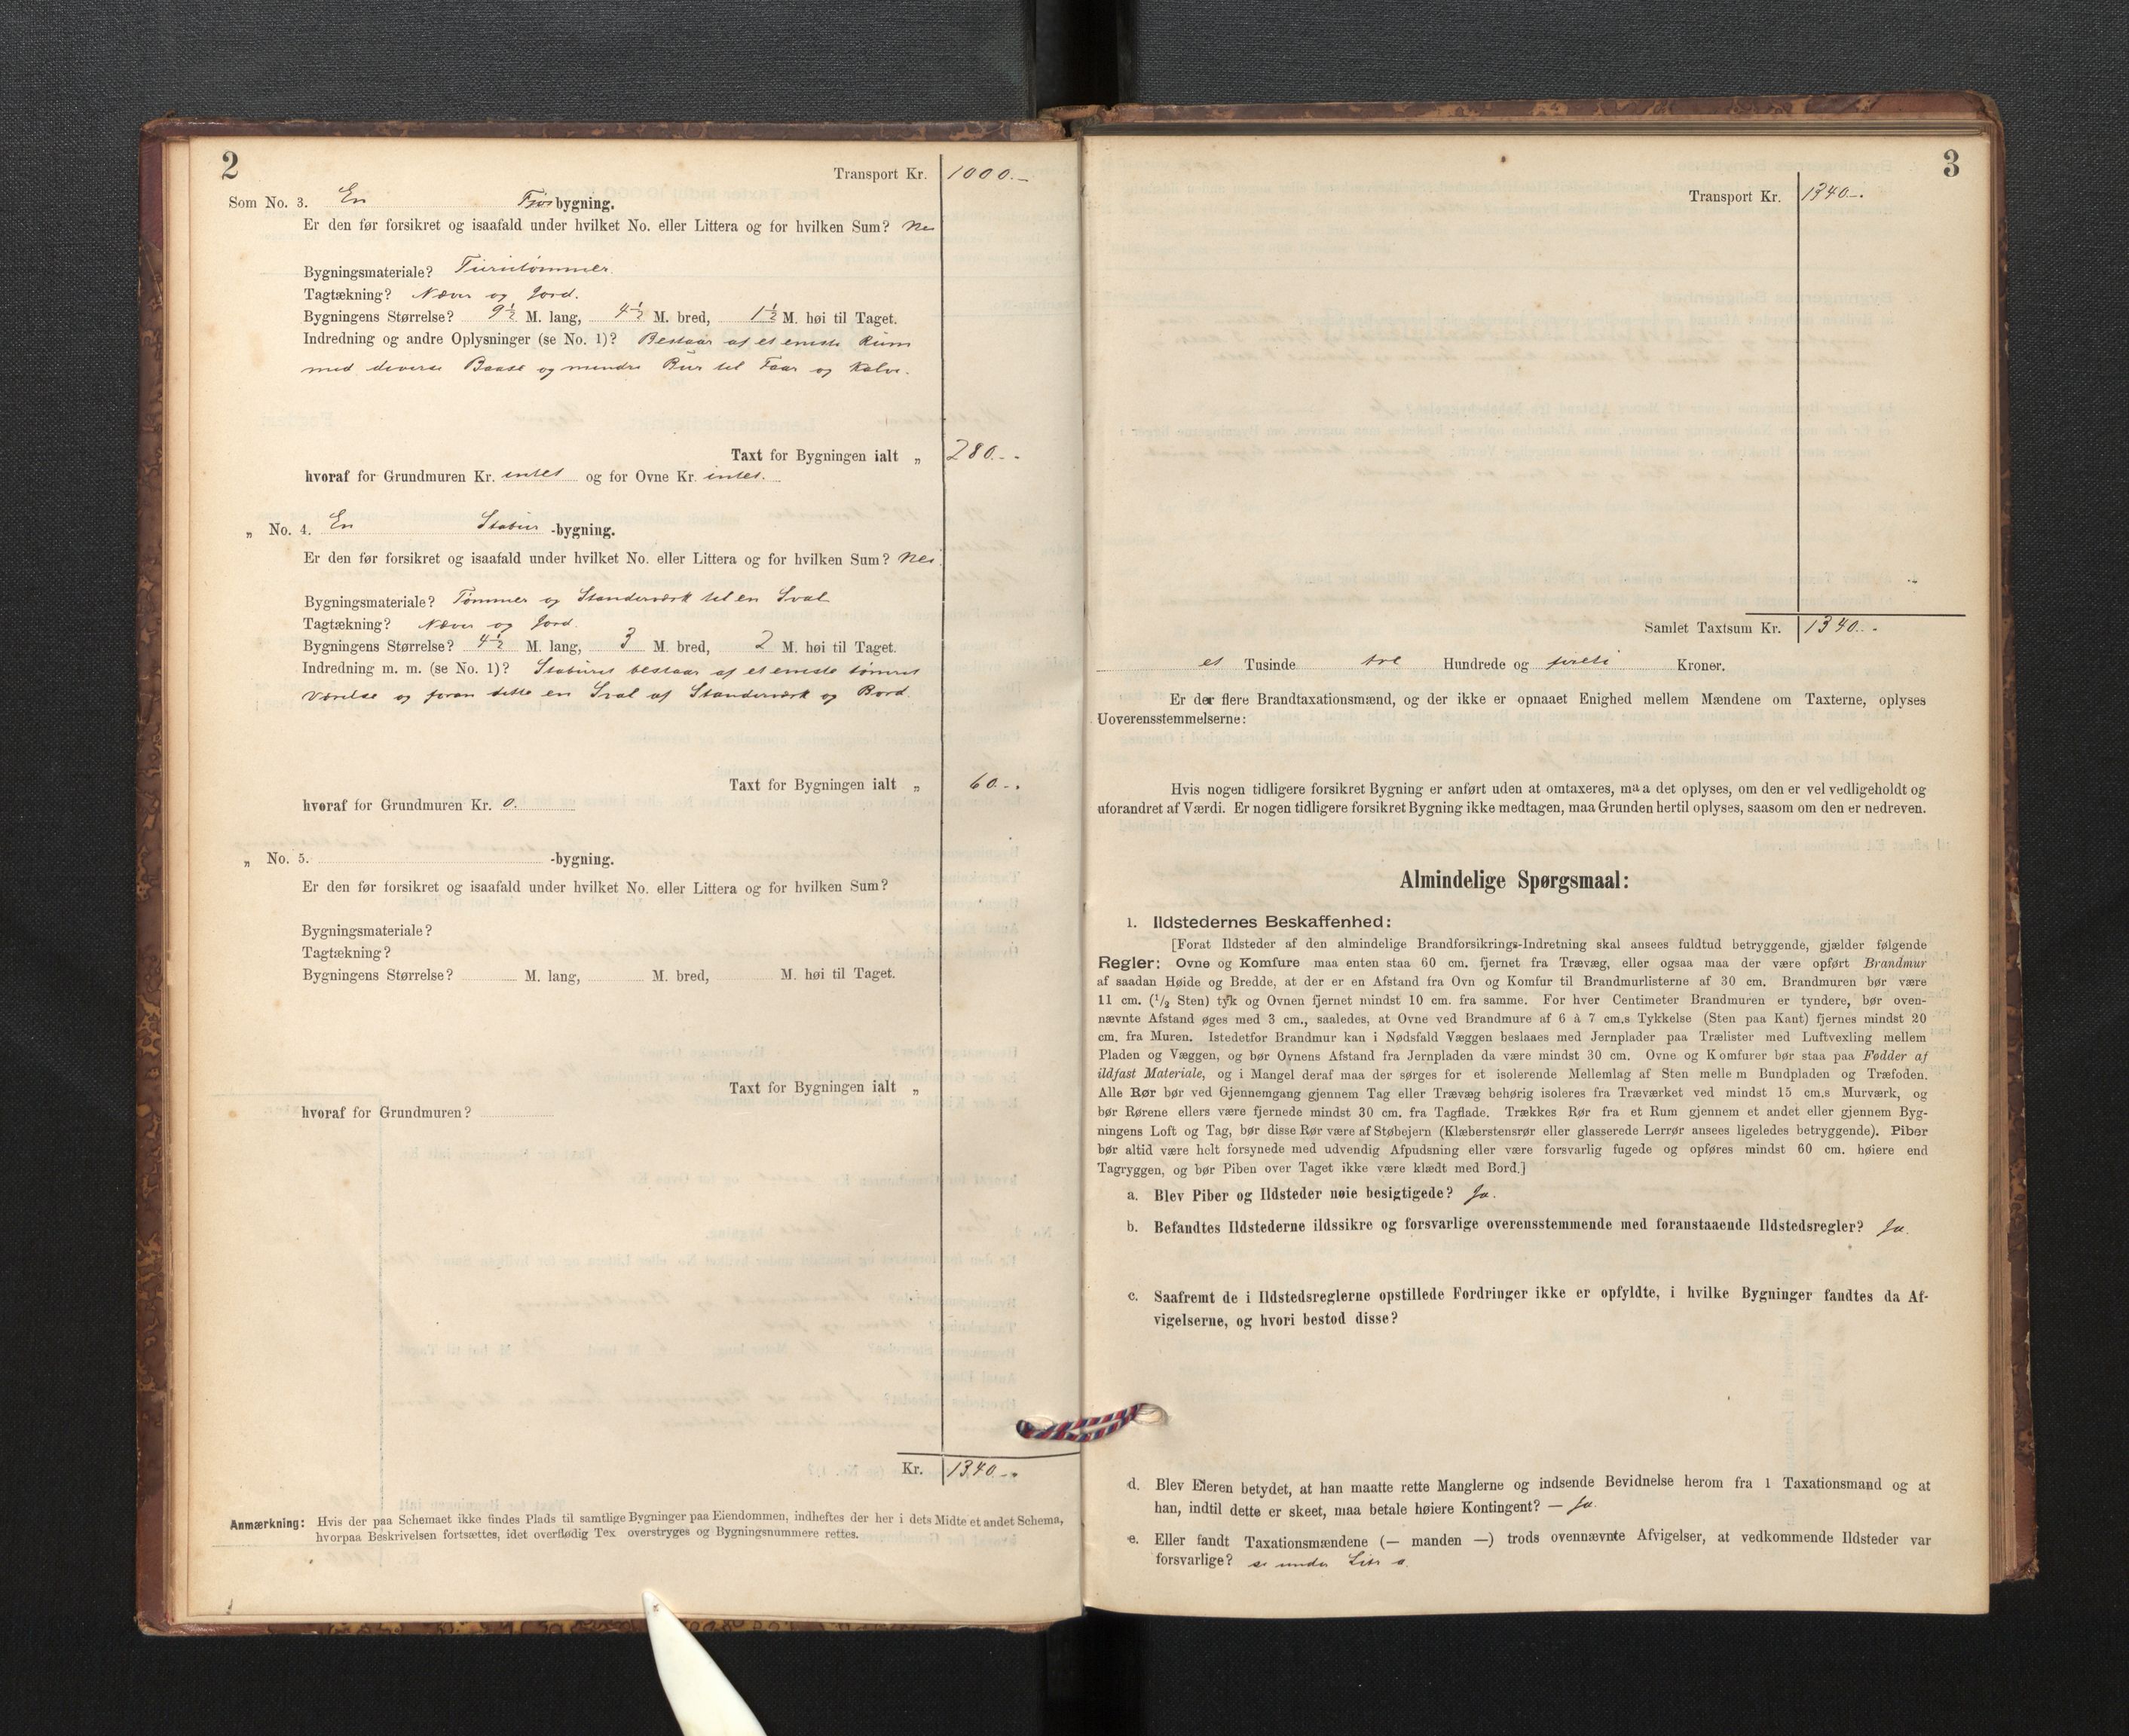 2
Transport Kr. 1000.-
Som No. 3. En Fjøsbygning.
Er den før forsikret og isaafald under hvilket No. eller Littera og for hvilken Sum? Nei
Bygningsmateriale? Furutømmer.
Tagtækning? Næver og Jord.
Bygningens Størrelse? 9½ M. lang, 4½ M. bred, 1½ M. høi til Taget.
Indredning og andre Oplysninger (se No. 1)? Bestaar af et eneste Rum
med diverse Baase og mindre Bur til Faar og Kalve.
Taxt for Bygningen ialt „ 280.-.
hvoraf for Grundmuren Kr. intet og for Ovne Kr. intet.
„ No. 4. En Stabur -bygning.
Er den før forsikret og isaafald under hvilket No. eller Littera og for hvilken Sum? Nei.
Bygningsmateriale? Tømmer og Standerværk til en Sval
Tagtækning? Næver og Jord.
Bygningens Størrelse? 4½ M. lang, 3 M. bred, 2 M. høi til Taget.
Indredning m. m. (se No. 1)? Staburet bestaar af et eneste tømret
Værelse og foran dette en Sval af Standerværk og Bord.
Taxt for Bygningen ialt „ 60.-.
hvoraf for Grundmuren Kr. 0.
„ No. 5. -bygning.
Er den før forsikret og isaafald under hvilket No. eller Littera og for hvilken Sum?
Bygningsmateriale?
Tagtækning?
Bygningens Størrelse? M. lang, M. bred, M. høi til Taget.
Taxt for Bygningen ialt „
hvoraf for Grundmuren?
Kr. 1340.-.
Anmærkning: Hvis der paa Schemaet ikke findes Plads til samtlige Bygninger paa Eiendommen, indheftes der her i dets Midte et andet Schema,
hvorpaa Beskrivelsen fortsættes, idet overflødig Tex overstryges og Bygningsnummere rettes.
3
Transport Kr. 1340.-.
Samlet Taxtsum Kr. 1340.-.
et Tusinde tre Hundrede og fireti Kroner.
Er der flere Brandtaxationsmænd, og der ikke er opnaaet Enighed mellem Mændene om Taxterne, oplyses
Uoverensstemmelserne:
Hvis nogen tidligere forsikret Bygning er anført uden at omtaxeres, maa det oplyses, om den er vel vedligeholdt og
uforandret af Værdi. Er nogen tidligere forsikret Bygning ikke medtagen, maa Grunden hertil oplyses, saasom om den er nedreven.
Almindelige Spørgsmaal:
1. Ildstedernes Beskaffenhed:
[Forat Ildsteder af den almindelige Brandforsikrings-Indretning skal ansees fuldtud betryggende, gjælder følgende
Regler: Ovne og Komfure maa enten staa 60 cm. fjernet fra Trævæg, eller ogsaa maa der være opført Brandmur
af saadan Høide og Bredde, at der er en Afstand fra Ovn og Komfur til Brandmurlisterne af 30 cm. Brandmuren bør være
11 cm. (1/2 Sten) tyk og Ovnen fjernet mindst 10 cm. fra samme. For hver Centimeter Brandmuren er tyndere, bør oven-
nævnte Afstand øges med 3 cm., saaledes, at Ovne ved Brandmure af 6 à 7 cm.s Tykkelse (Sten paa Kant) fjernes mindst 20
cm. fra Muren. Istedetfor Brandmur kan i Nødsfald Væggen beslaaes med Jernplader paa Trælister med Luftvexling mellem
Pladen og Væggen, og bør Ovnens Afstand fra Jernpladen da være mindst 30 cm. Ovne og Komfurer bør staa paa Fødder af
ildfast Materiale, og i Mangel deraf maa der sørges for et isolerende Mellemlag af Sten mellem Bundpladen og Træfoden.
Alle Rør bør ved Gjennemgang gjennem Tag eller Trævæg behørig isoleres fra Træværket ved mindst 15 cm.s Murværk, og
bør Rørene ellers være fjernede mindst 30 cm. fra Tagflade. Trækkes Rør fra et Rum gjennem et andet eller gjennem Byg-
ningens Loft og Tag, bør disse Rør være af Støbejern (Klæberstensrør eller glasserede Lerrør ansees ligeledes betryggende). Piber
bør altid være helt forsynede med udvendig Afpudsning eller være forsvarlig fugede og opføres mindst 60 cm. høiere end
Tagryggen, og bør Piben over Taget ikke være klædt med Bord.]
a. Blev Piber og Ildsteder nøie besigtigede? Ja.
b. Befandtes Ildstederne ildssikre og forsvarlige overensstemmende med foranstaaende Ildstedsregler? Ja.
c. Saafremt de i Ildstedsreglerne opstillede Fordringer ikke er opfyldte, i hvilke Bygninger fandtes da Af-
vigelserne, og hvori bestod disse?
d. Blev Eieren betydet, at han maatte rette Manglerne og indsende Bevidnelse herom fra 1 Taxationsmand og at
han, indtil dette er skeet, maa betale høiere Kontingent? — Ja.
e. Eller fandt Taxationsmændene (— manden —) trods ovennævnte Afvigelser, at vedkommende Ildsteder var
forsvarlige? se under Litr a.